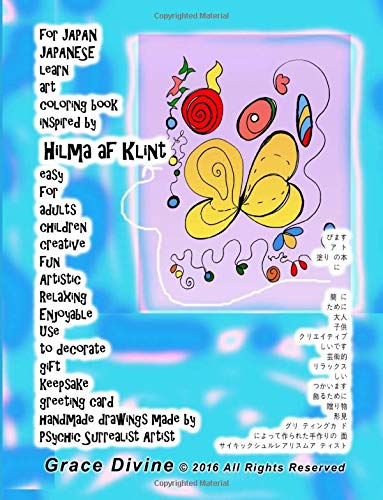 For JAPAN
JAPANESE
Learn
art
coloring book
inspired by
Hilma aF Klint
easy
For
adults
children
creative
Fun
Artistic
Relaxing
Enjoyable
Use
to decorate
gift
Keepsake
greeting card
Handmade drawings made by
Psychic Surrealist Artist
びます
ア ト
塗り の本
に
簡 に
ために
大人
子供
クリエイティブ
しいです
芸術的
リラックス
しい
つかいます
飾るために
贈り物
形見
グリ ティングカ ド
によって作られた手作りの 面
サイキックシュルレアリスムア ティスト
Grace Divine © 2016 All Rights Reserved